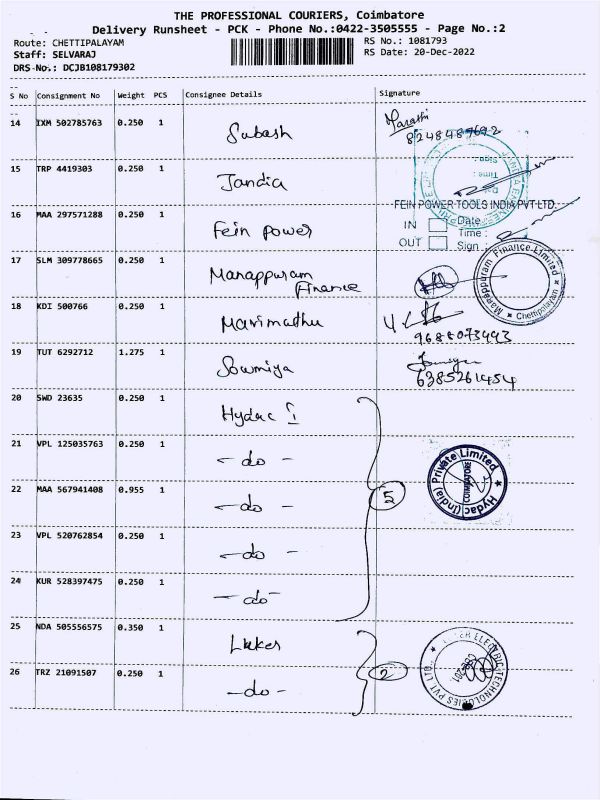 THE PROFESSIONAL COURIERS, Coimbatore
Delivery Runsheet - PCK - Phone No.:0422-3505555 - Page No.:2
Route: CHETTIPALAYAM RS No.: 1081793
Staff: SELVARAJ RS Date: 20-Dec-2022
DRS-No.: DCJB108179302
S No Consignment No Weight PCS Consignee Details Signature
14 IXM 502785763 0.250 1 Subash
8248487692
15 TRP 4419303 0.250 1 Jandia
FEIN POWER TOOLS INDIA PVT LTD.
16 MAA 297571288 0.250 1 Fein power
IN Date
Time :
OUT Sign :
17 SLM 309778665 0.250 1 Manappuram
Finance
Manappuram Finance Limited
Chettipalayam
18 KDI 500766 0.250 1 Marimuthu
9688073443
19 TUT 6292712 1.275 1 Sowmiya
6385261454
20 SWD 23635 0.250 1 Hydac I
21 VPL 125035763 0.250 1 -do-
Hydac (India) Private Limited
COIMBATORE
22 MAA 567941408 0.955 1 -do- 5
23 VPL 520762854 0.250 1 -do-
24 KUR 528397475 0.250 1 -do-
25 NDA 505556575 0.350 1
26 TRZ 21091507 0.250 1 -do- 2
ELECTRIC TECHNOLOGIES PVT LTD.